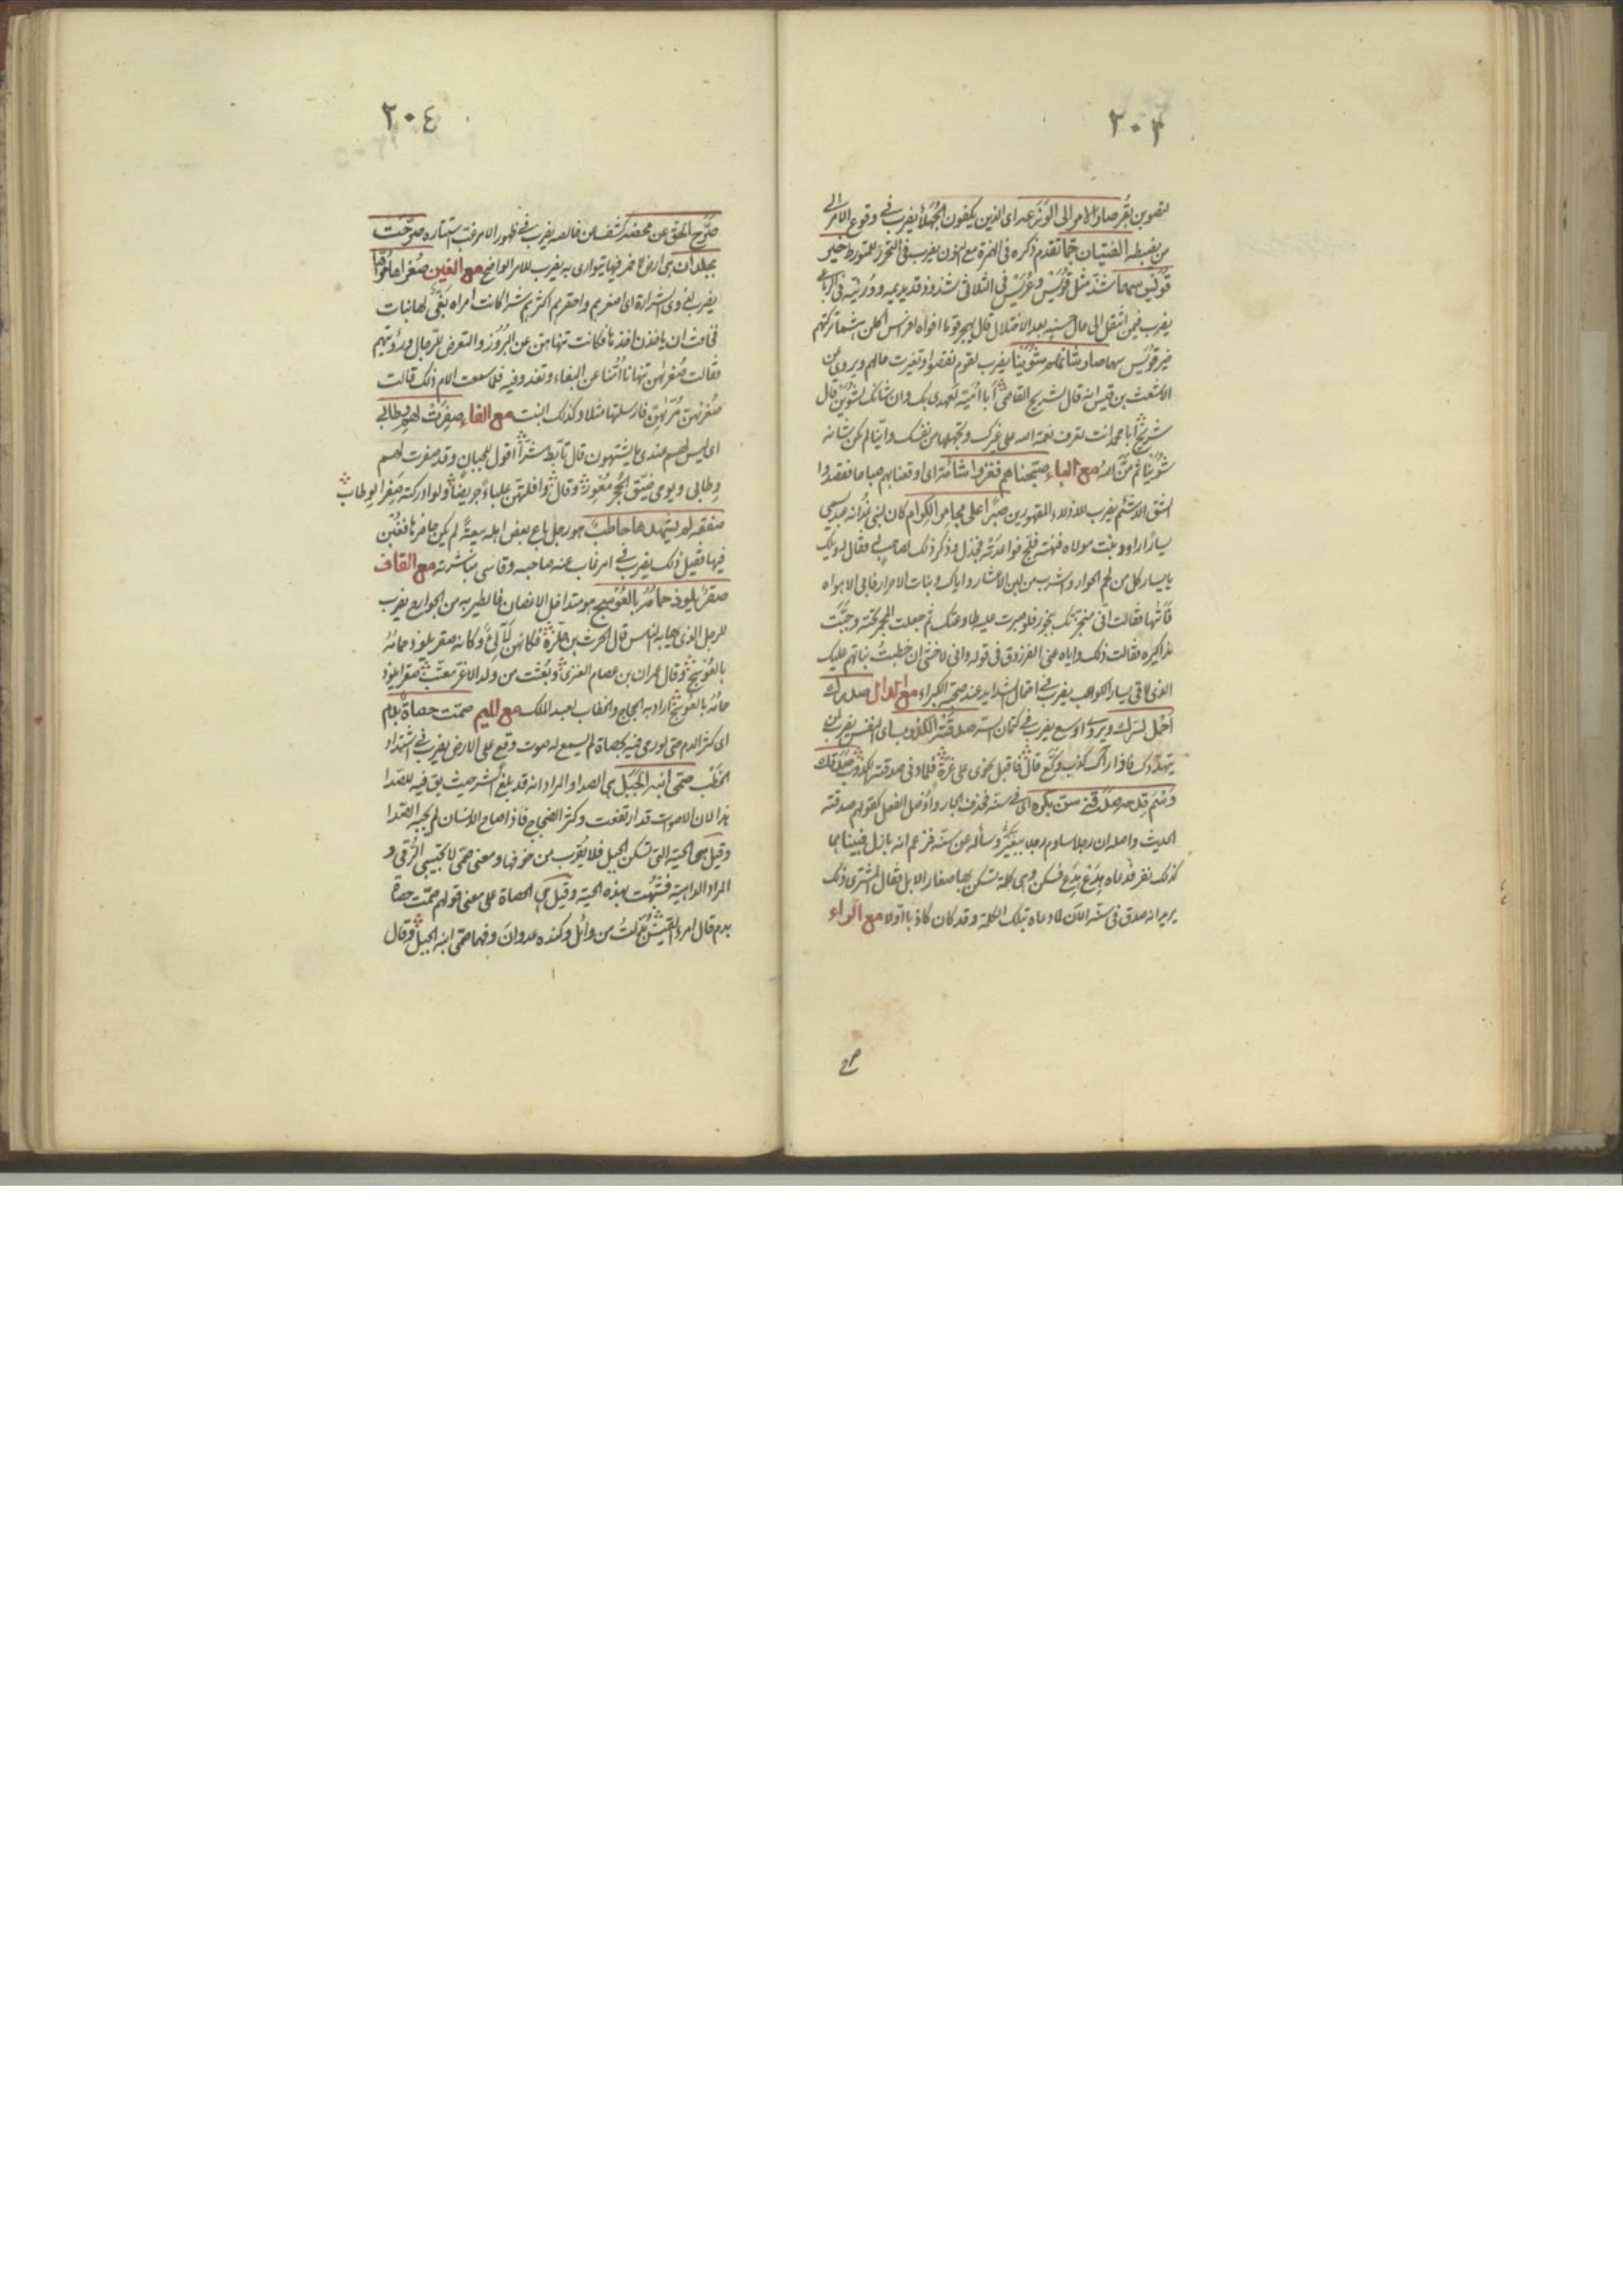 ٢٠٣
لتصوبن بقر صار الامر الى الوزعه اى الذين يكفون الجهلاء يضرب فى وقوع الامر الى
من يضبطه الفتيان حما تقدم ذكره فى الهمزة مع النون يضرب فى التحرز للمتورط خير
قويس سهما شذ مثل قويس وعريس فى الثلاثى شذوذ قديديمه ووريئه فى الرباعى
يضرب فيمن انتقل الى حال حسنه بعد الاختلال قال
خير قويس سهما صار شانهم شوينا يضرب لقوم نقصوا وتغيرت حالهم ويروى ان
الاشعث بن قيس انه قال لشريح القاضى أبا اميّة لعهدى بك وان شانك لشوين قال
شريح أبا محمد انت تعرف نعمة الله على غيرك وتجهلها من نفسك وايّنا لم يكن شانه
شوينا ثم منّ الله مع الباء صبحناهم فغدوا شأمة اى اوقعنا بهم صباحا فقصدوا
الشق الاشئم يضرب للاذلاء المقهورين صبرا على مجامر الكرام كان لبنى غدانه عبد يسمى
يسارا راود بنت مولاه فنهته فلج فواعدته فجذل وذكر ذلك لصاحب له فقال له ويلك
يا يسار كل من لحم الحوار واشرب من لبن الاعشار واياك وبنات الاحرار فابى الا هواه
فأتاها فقالت انى مبخرتك ببخور فلو صبرت عليه طاوعتك ثم جعلت المجمر تحته وجبّت
مذاكيره فقالت ذلك واياه عنى الفرزدق فى قوله وانى لاخشى ان خطبت بناتهم عليك
الذى لاقى يسار الكواعب يضرب فى احتمال الشدايد عند صحبة الكبراء مع الدال صدرك
احمل لسرك ويروى اوسع يضرب فى كتمان السر صدقته الكذوب اى النفس يضرب لمن
يتهددك فاذا رآك كذب وكعّ قال فاقبل نحوى على غرة فلما دنى صدقته الكذوب صدقك
وسم قدحه صدقنى سن بكره اى فى سنه فحذف الجار واوصل الفعل كقولهم صدقته
الحديث واصله ان رجلا ساوم رجلا ببعير وسأله عن سنّه فزعم انه بازل فبينا هما
كذلك نفر فدعاه هدع هدع فسكن وهى كلمة تسكن بها صغار الابل فقال المشترى ذلك
يريد انه صدق فى سنّه الآن لما دعاه بتلك الكلمة وقد كان كاذبا اولا مع الراء
صرح
٢٠٤
صرّح الحق عن محضه كشف عن خالصه يضرب فى ظهور الامر غب استتاره صرحت
بجلدان هى ارض لا خمر فيها يتوارى به يضرب للامر الواضح مع الغين صغراها مُرّاها
يضرب لذوى الشرارة اى اصغرهم واحقرهم اكثرهم شرا كانت امراه بغىّ لها بنات
فخافت ان ياخذن اخذها فكانت تنهاهن عن البروز والتعرض للرجال ورؤيتهم
فقالت صغراهن تنهانا امّنا عن البغاء وتغدو فيه فلما سمعت الام ذلك قالت
صغراهن مُرّاهن فارسلتها مثلا وكذلك البنت مع الفاء صفرت لهم وطابى
اى ليس لهم عندى ما يشتهون قال تأبط شرّا اقول للحيان وقد صفرت لهم
وطابى ويومى ضيّق الجحر مُعْوِر وقال وافلتهنّ علباء جريضا ولو ادركنه صفر الوطاب
صفقه لم يشهدها حاطب هو رجل باع بعض اهله بيعة لم يكن حاضرها فغُبن
فيها فقيل ذلك يضرب فى امر غاب عنه صاحبه وقاسى مباشرته مع القاف
صقر يلوذ حمامه بالعوسج هو متداخل الاغصان فالطير به من الجوارح يضرب
للرجل الذى يهابه الناس قال الحرث بن حلزة فكانهن لآلئ وكانه صقر يلوذ حمامه
بالعوسج وقال عمران بن عصام العنزى وبعثت من ولد الاغر معتّب صقرا يلوذ
حمامه بالعوسج اراد به الحجاج والخطاب لعبد الملك مع الميم صمّت حصاة بدم
اى كثر الدم حتى لو رمى فيه بحصاة لم يسمع له صوت وقع على الارض يضرب فى اشتداد
الخطب صمّى ابنة الجبل هى الصدا والمراد انه قد بلغ الشر حيث يقال فيه للصدا
هذا لان الاصوات قد ارتفعت وكثر الضجاج فاذا صاح الانسان لم يجبه الصدا
وقيل هى الحية التى تسكن الجبل فلا يُقرب من خوفها ومعنى صمّى لا تجيبى الرُّقى و
المراد الداهية فشبهت بهذه الحية وقيل هى الحصاة على معنى قولهم صمّت حصاة
بدم قال امرء القيس بُدّلتُ من وائل وكنده عدوان وفهما صمّى ابنة الجبل وقال